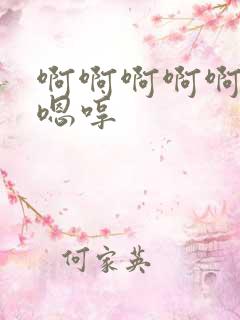 啊啊啊啊啊
嗯哼
何家英